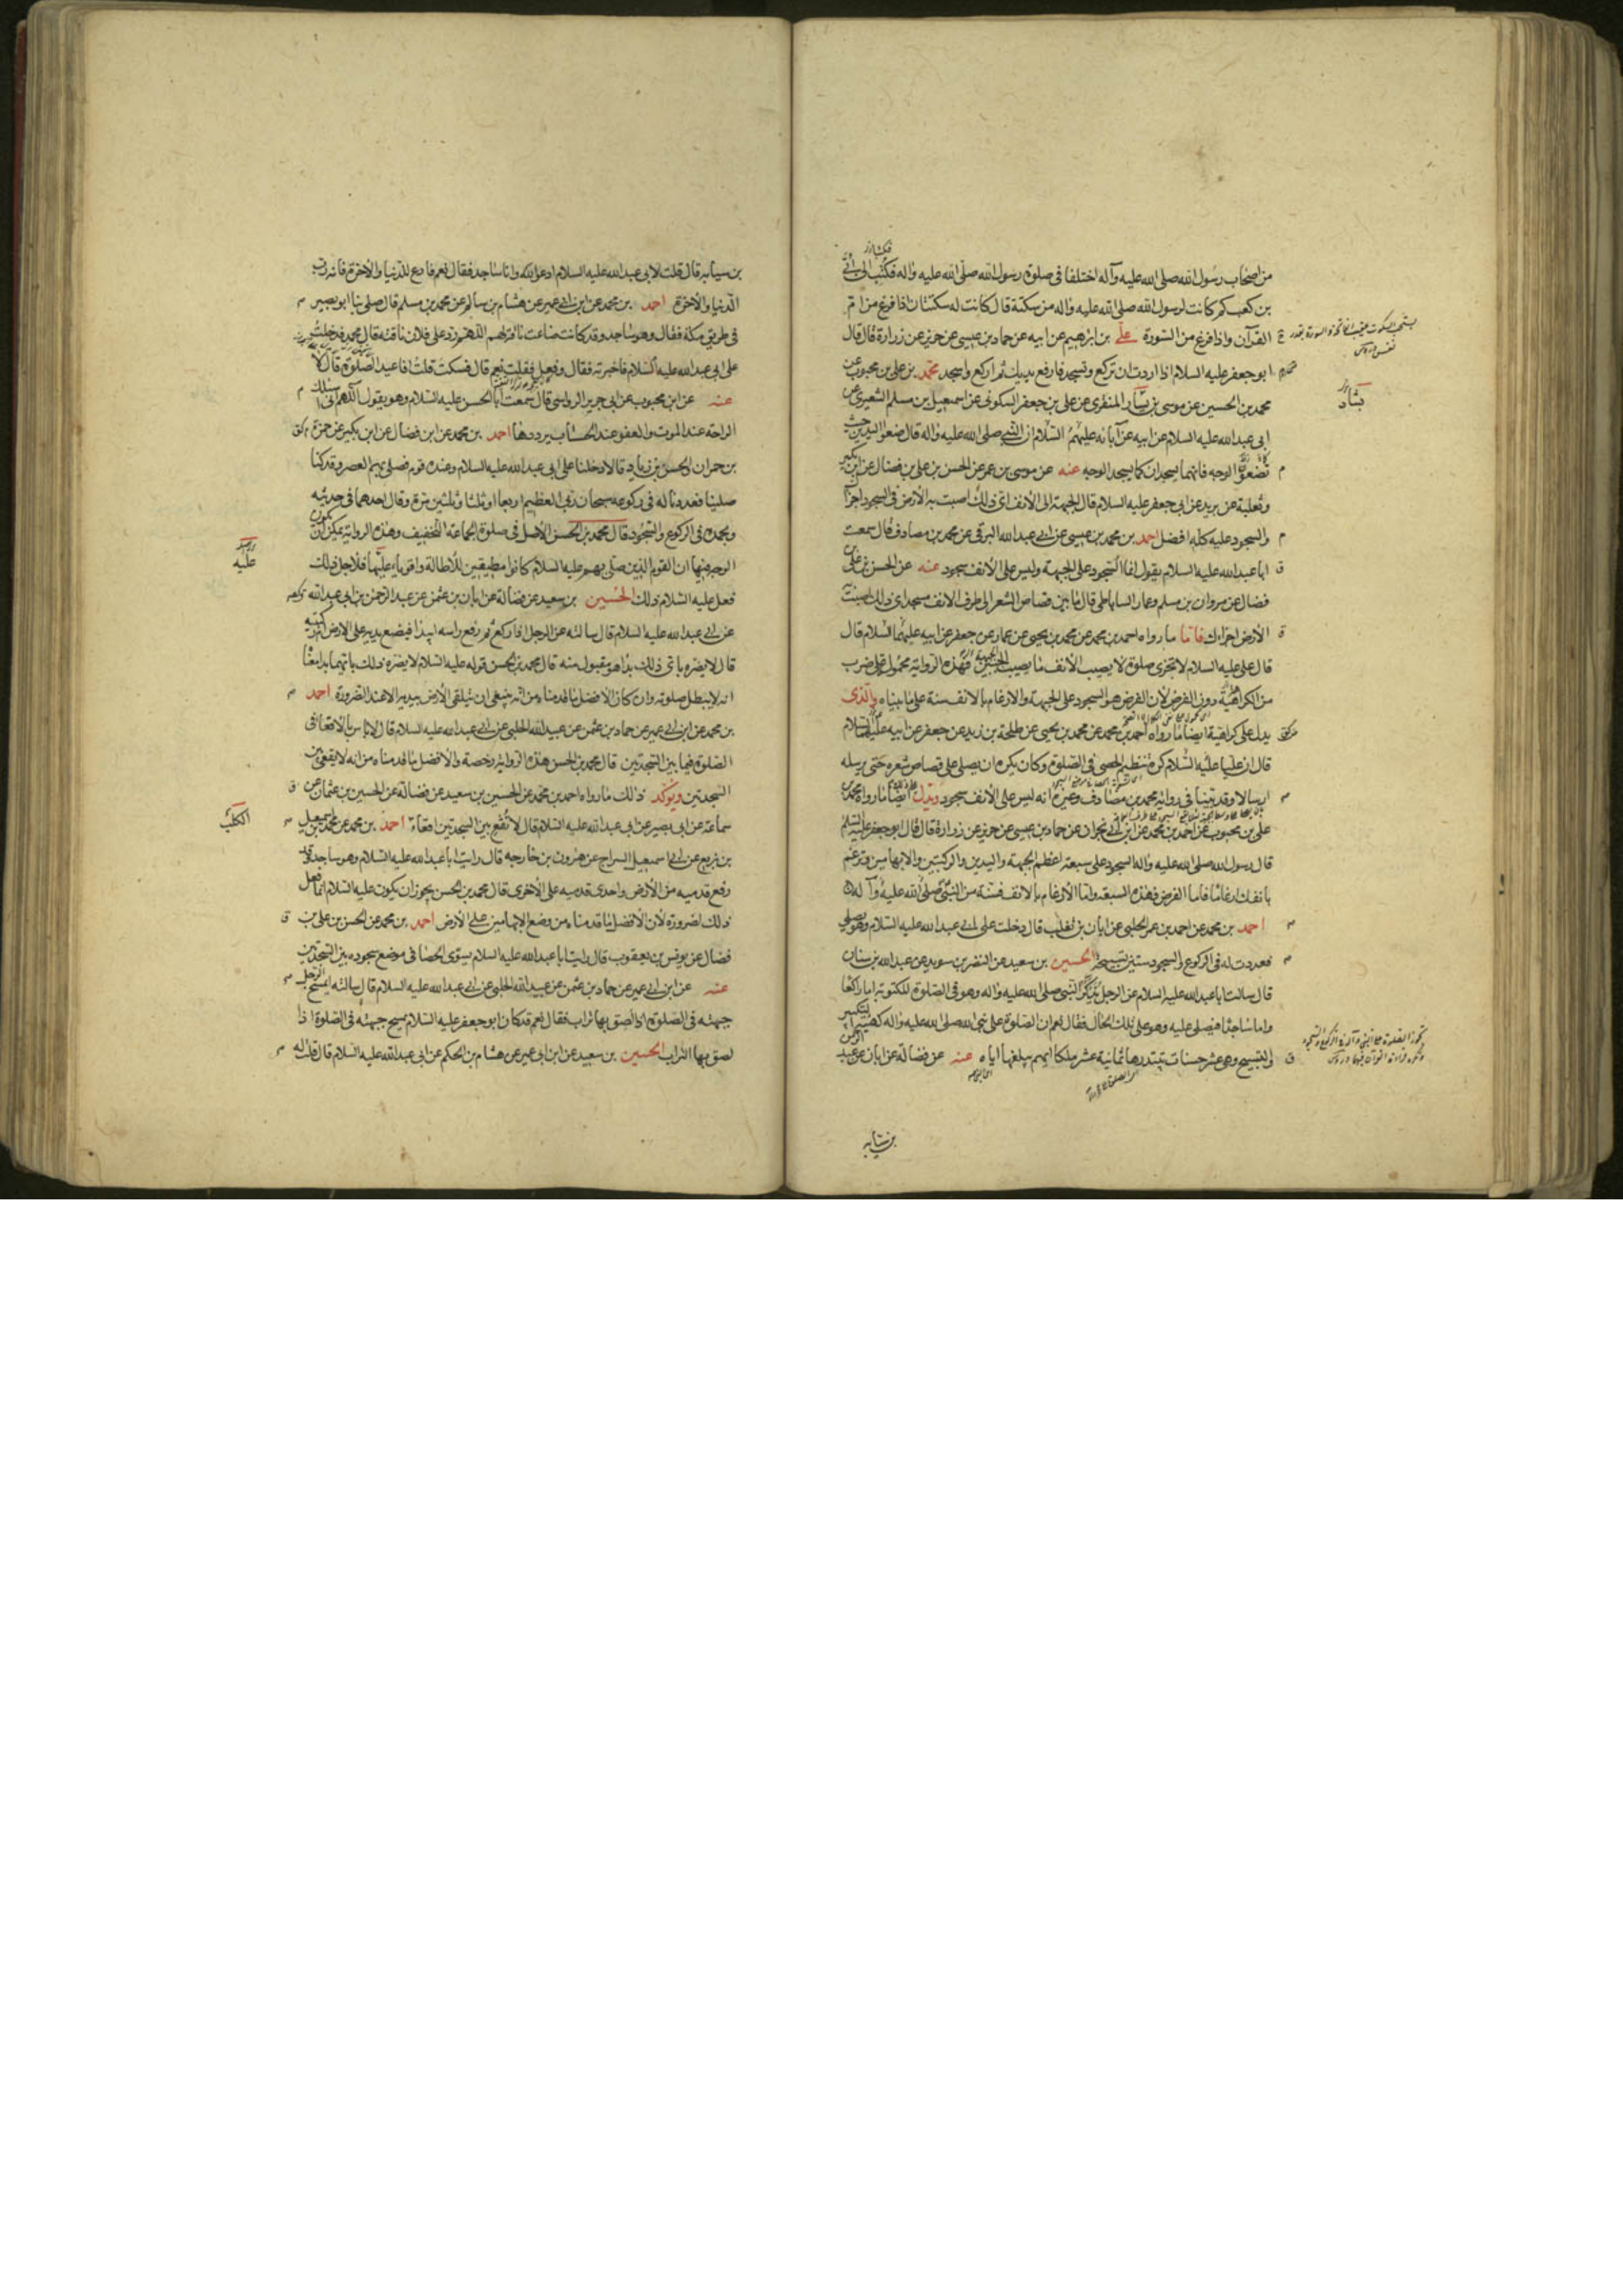 من اصحاب رسول الله صلى الله عليه وآله اختلفا فى صلوة رسول الله صلى الله عليه واله فكتب الى ابى
بن كعب كم كانت لرسول الله صلى الله عليه واله من سكتة قال كانت له سكتتان اذا فرغ من ام
القرآن واذا فرغ من السورة على بن ابرهيم عن ابيه عن حماد بن عيسى عن حريز عن زرارة قال قال
ابو جعفر عليه السلام اذا اردت ان تركع وتسجد فارفع يديك ثم اركع واسجد محمد بن على بن محبوب عن
محمد بن الحسين عن موسى بن يسار المنقرى عن على بن جعفر السكونى عن اسمعيل بن مسلم الشعيرى عن
ابى عبد الله عليه السلام عن ابيه عن آبائه عليهم السلام ان النبى صلى الله عليه واله قال ضعوا اليدين حيث
تضعون الوجه فانهما يسجدان كما يسجد الوجه عنه عن موسى بن عمر عن الحسن بن على بن فضال عن ابن بكير
وثعلبة عن بريد عن ابى جعفر عليه السلام قال الجبهة الى الانف اى ذلك اصبت به الارض فى السجود اجزأك
والسجود عليه كله افضل احمد بن محمد بن عيسى عن ابى عبد الله البرقى عن محمد بن مصادف قال سمعت
ابا عبد الله عليه السلام يقول انما السجود على الجبهة وليس على الانف سجود عنه عن الحسن بن على بن
فضال عن مروان بن مسلم وعمار الساباطى قال ما بين قصاص الشعر الى طرف الانف مسجد اى ذلك اصبت به
الارض اجزاك فاما ما رواه احمد بن محمد عن محمد بن يحيى عن عمار عن جعفر عن ابيه عليهما السلام قال
قال على عليه السلام لا تجزى صلوة لا يصيب الانف ما يصيب الجبين فهذه الرواية محمولة على ضرب
من الكراهية دون الفرض لان الفرض هو السجود على الجبهة والارغام بالانف سنة على ما بيناه والذى
يدل على كراهية ايضا ما رواه احمد بن محمد عن محمد بن يحيى عن طلحة بن زيد عن جعفر عن ابيه عليهما السلام
قال ان عليا عليه السلام كره تنظيم الحصى فى الصلوة وكان يكره ان يصلى على قصاص شعره حتى يرسله
ارسالا وقد بينا فى رواية محمد بن مصادف وغيره انه ليس على الانف سجود ويدل ايضا ما رواه محمد بن
على بن محبوب عن احمد بن محمد عن ابن ابى نجران عن حماد بن عيسى عن حريز عن زرارة قال قال ابو جعفر عليه السلم
قال رسول الله صلى الله عليه واله السجود على سبعة اعظم الجبهة واليدين والركبتين والابهامين وترغم
بانفك ارغاما فاما الفرض فهذه السبعة واما الارغام بالانف فسنة من النبى صلى الله عليه وآله
احمد بن محمد عن احمد بن عمر الحلبى عن ابان بن تغلب قال دخلت على ابى عبد الله عليه السلام وهو يصلى
فعددت له فى الركوع والسجود ستين تسبيحة الحسين بن سعيد عن النضر بن سويد عن عبد الله بن سنان
قال سالت ابا عبد الله عليه السلام عن الرجل يذكر النبى صلى الله عليه واله وهو فى الصلوة المكتوبة اما راكعا
واما ساجدا فيصلى عليه وهو على تلك الحال فقال نعم ان الصلوة على نبى الله صلى الله عليه واله كهيئة التكبير
والتسبيح وهى عشر حسنات يبتدرها ثمانية عشر ملكا ايهم يبلغها اياه عنه عن فضالة عن ابان عن عبد الرحمن
بن سيابه
بشار
بن سيابه قال قلت لابى عبد الله عليه السلام ادعو الله وانا ساجد فقال نعم فادع للدنيا والآخرة فانه رب
الدنيا والآخرة احمد بن محمد عن ابن ابى عمير عن هشام بن سالم عن محمد بن مسلم قال صلى بنا ابو بصير
فى طريق مكة فقال وهو ساجد وقد كانت ضاعت ناقة لهم اللهم رد على فلان ناقته قال محمد فدخلت
على ابى عبد الله عليه السلام فاخبرته فقال وفعل فقلت نعم قال فسكت قلت افاعيد الصلوة قال لا
عنه عن ابن محبوب عن ابى جرير الرواسى قال سمعت ابا الحسن عليه السلام وهو يقول اللهم انى اسئلك
الراحة عند الموت والعفو عند الحساب يرددها احمد بن محمد عن ابن فضال عن ابن بكير عن حمزة
بن حمران والحسن بن زياد قالا دخلنا على ابى عبد الله عليه السلام وعنده قوم فصلى بهم العصر وقد كنا
صلينا فعددنا له فى ركوعه سبحان ربى العظيم اربعا او ثلثا وثلثين مرة وقال احدهما فى حديثه
وبحمده فى الركوع والسجود قال محمد بن الحسن الاصل فى صلوة الجماعة التخفيف وهذه الرواية يمكن ان يكون
الوجه فيها ان القوم الذين صلى بهم عليه السلام كانوا مطيقين للاطالة واقوياء عليها فلاجل ذلك
فعل عليه السلام ذلك الحسين بن سعيد عن فضالة عن ابان بن عثمن عن عبد الرحمن بن ابى عبد الله
عن ابى عبد الله عليه السلام قال سالته عن الرجل اذا ركع ثم رفع راسه ايبدا فيضع يديه على الارض ام ركبتيه
قال لا يضره باى ذلك بدا هو مقبول منه قال محمد بن الحسن قوله عليه السلام لا يضره ذلك بايهما بدا معناه
انه لا يبطل صلوته وان كان الافضل ما قدمناه من انه ينبغى ان يتلقى الارض بيديه الا عند الضرورة احمد
بن محمد عن ابن ابى عمير عن حماد بن عثمن عن عبيد الله الحلبى عن ابى عبد الله عليه السلام قال لا باس بالاقعاء فى
الصلوة فيما بين السجدتين قال محمد بن الحسن هذه الرواية رخصة والافضل ما قدمناه من انه لا يقعى بين
السجدتين ويؤكد ذلك ما رواه احمد بن محمد عن الحسين بن سعيد عن فضالة عن الحسين بن عثمان عن
سماعة عن ابى بصير عن ابى عبد الله عليه السلام قال لا تقع بين السجدتين اقعاء احمد بن محمد عن محمد بن اسمعيل
بن بزيع عن ابى اسمعيل السراج عن هرون بن خارجه قال رايت ابا عبد الله عليه السلام وهو ساجد وقد
رفع قدميه من الارض واحدى قدميه على الاخرى قال محمد بن الحسن يجوز ان يكون عليه السلام انما فعل
ذلك لضرورة لان الافضل ما قدمناه من وضع الابهامين على الارض احمد بن محمد عن الحسن بن على بن
فضال عن يونس بن يعقوب قال رايت ابا عبد الله عليه السلام يسوى الحصا فى موضع سجوده بين السجدتين
عنه عن ابن ابى عمير عن حماد بن عثمن عن عبيد الله الحلبى عن ابى عبد الله عليه السلام قال سالته ايمسح الرجل
جبهته فى الصلوة اذا لصق بها تراب فقال نعم قد كان ابو جعفر عليه السلام يمسح جبهته فى الصلوة اذا
لصق بها التراب الحسين بن سعيد عن ابن ابى عمير عن هشام بن الحكم عن ابى عبد الله عليه السلام قال قلت له
عليه
الكلب